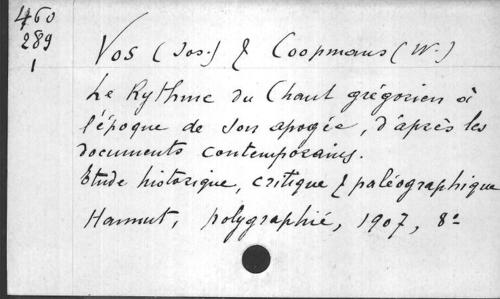 460
289
1
Vos (Jos.) & Coopmans (W.)
Le Rythme du Chant grégorien à
l'époque de son apogée, d'après les
documents contemporains.
Etude historique, critique & paléographique
Hannut, polygraphié, 1907, 8º